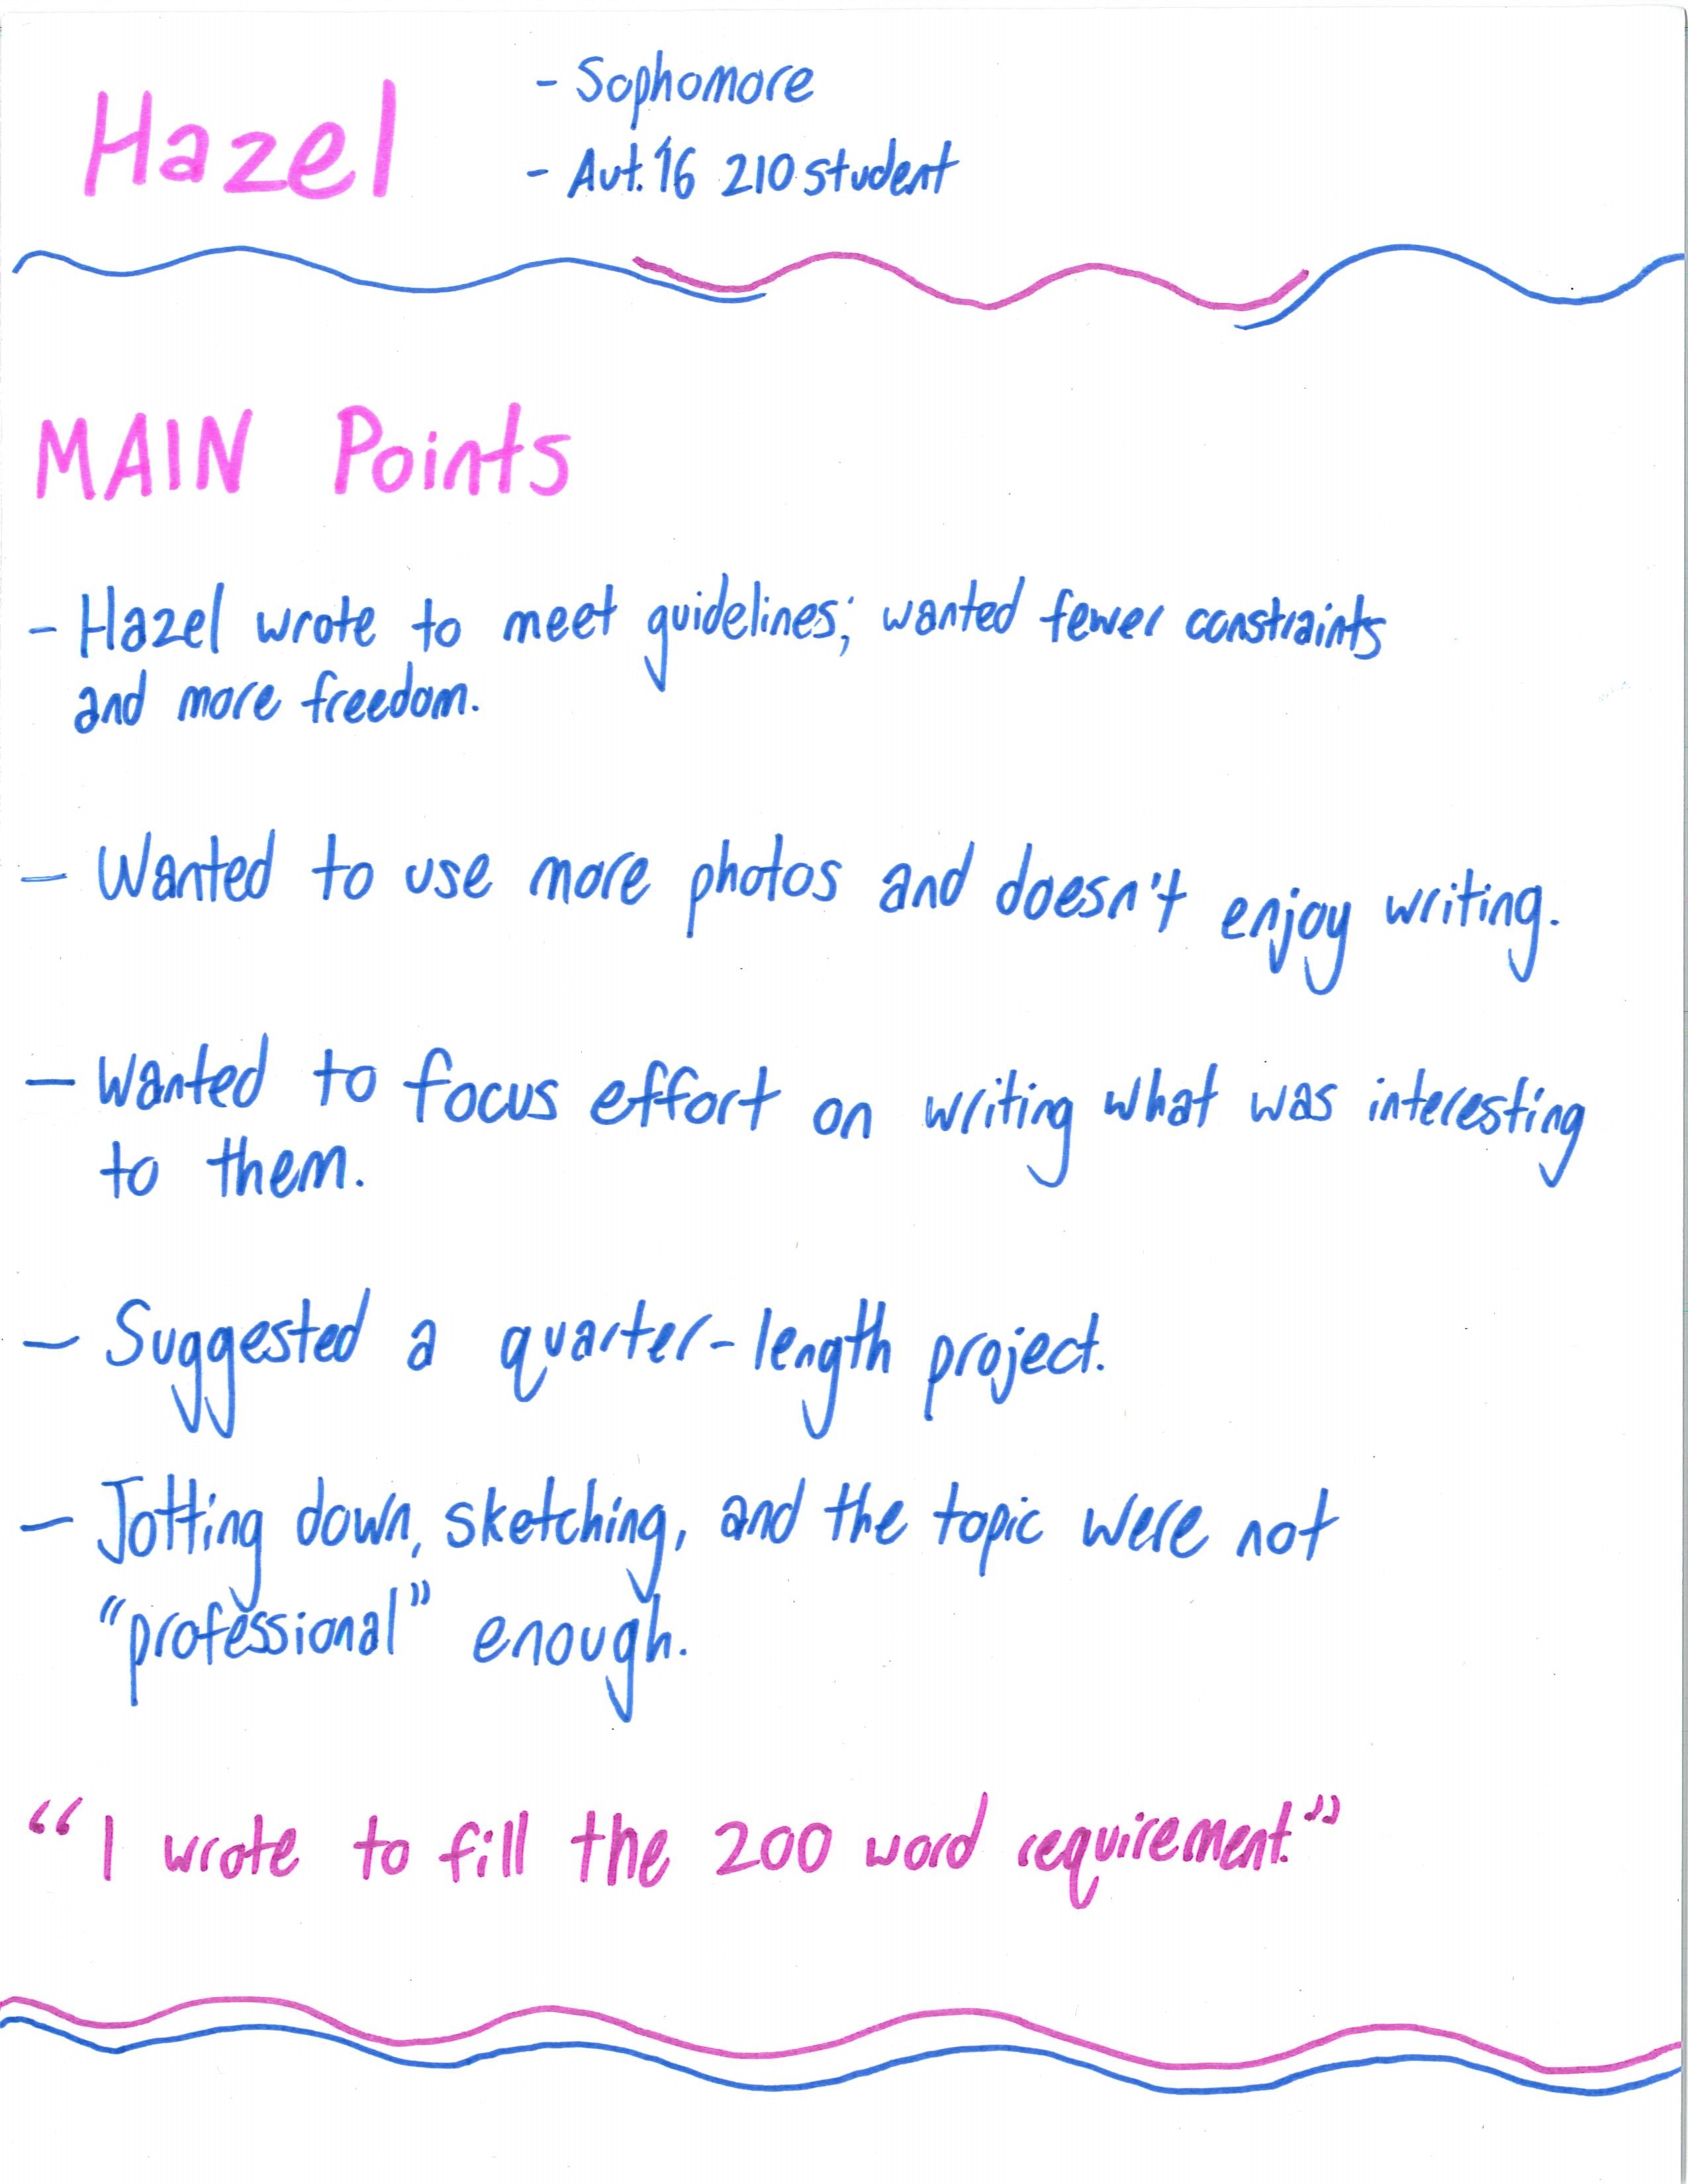 Hazel
- Sophomore
- Aut. '16 210 student
MAIN Points
- Hazel wrote to meet guidelines; wanted fewer constraints
and more freedom.
- Wanted to use more photos and doesn't enjoy writing.
- Wanted to focus effort on writing what was interesting
to them.
- Suggested a quarter-length project.
- Jotting down, sketching, and the topic were not
"professional" enough.
"I wrote to fill the 200 word requirement."